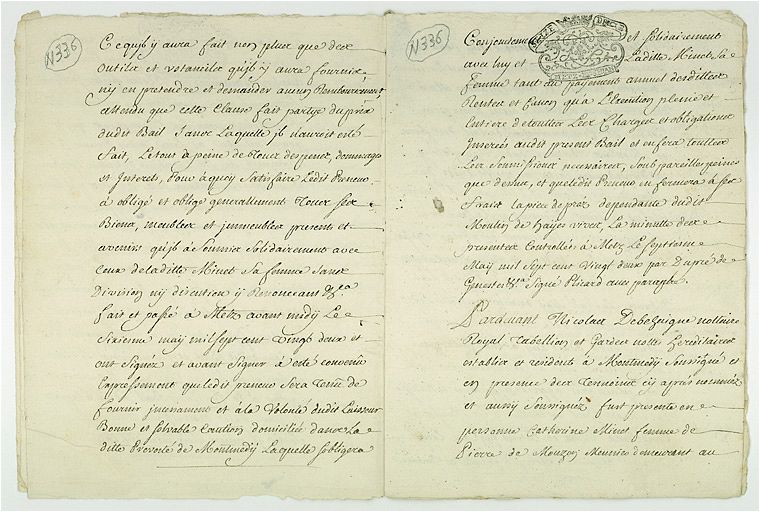 N336
Ce qujls y aura fait non plus que des
outils et vstancils qujls y aura fournis,
ny en pretendre et demander aucun Rembourcement
attendu que cette Clause fait partye du prix
dudit Bail Sans Laquelle jl n'auroit esté
fait, Le tout a peine de tous despens, dommages
et Interets, Pour a quoy Satisfaire Ledit Preneur
a obligé et oblige generallement Tous ses
Biens, meubles et jmmeubles presents et
avenirs qujls a Soumis Solidairement avec
Ceux de laditte Minet Sa femme Sans
Division ny discution y Renonceant &a
fait et passé a Metz avant midy Le
Sixieme may mil sept cent vingt deux et
ont Signez et avant Signer a esté convenu
Expressement que ledit preneur Sera Tenu de
fournir jncessament et a la Volonté dudit Laisseur
Bonne et solvable Caution domiciliée dans La
ditte Prevosté de Montmedÿ Laquelle Sobligera
N336
Conjointement et solidairement
avec luy et Laditte Minet Sa
Femme tant au payement annuel desdittes
Rentes et Canon qu'a L'Execution pleine et
Entiere de touttes Les Charges et obligations
Inserées audit present Bail et en fera touttes
Les Soumissions necessaires, Soub pareilles peines
que dessus, et que ledit Preneur en fermera a ses
Frais la piece de prez dependante dudit
Moulin de hayes vives, La minutte des
presentes Controllée a Metz Le septieme
May mil Sept cent Vingt deux par Dupré de
Signé Picard avec paraphe.
Pardevant Nicolas notaire
Royal, Tabellion et Gardes nottes Hereditaires
establis et residents a Montmedÿ Soussigné et
en presence des Temoins cy apres nommés
et aussy Soussignéz furt presente en
personne Catherine Minet femme de
Pierre de Mouzon Meunier demeurant au